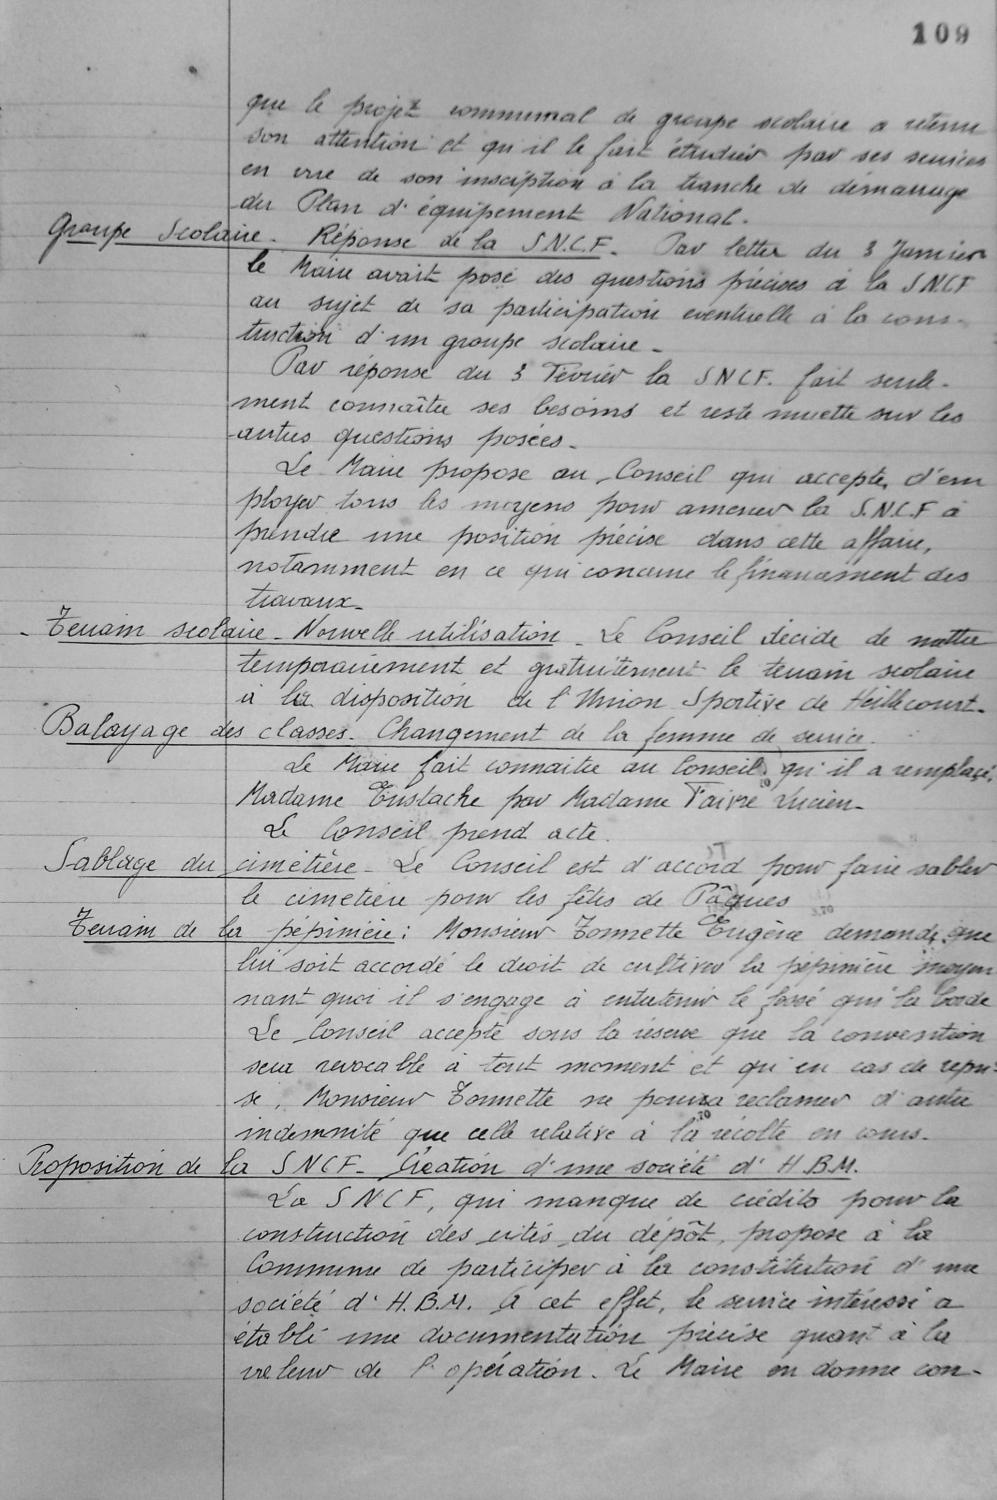 109
que le projet communal de groupe scolaire a retenu
son attention et qu'il le fait étudier par ses services
en vue de son insciption à la tranche de démarrage
du Plan d'équipement National.
Groupe Scolaire. Réponse de la S.N.C.F. Par lettre du 3 Janvier
le Maire avait posé des questions précises à la SNCF
au sujet de sa participation eventuelle à la cons-
truction d'un groupe scolaire.
Par réponse du 3 Février la SNCF. fait seule-
ment connaître ses besoins et reste muette sur les
autres questions posées.
Le Maire propose au Conseil qui accepte, d'em
ployer tous les moyens pour amener la S.N.C.F à
prendre une position précise dans cette affaire,
notamment en ce qui concerne le financement des
travaux.
Terrain scolaire. Nouvelle utilisation. Le Conseil décide de mettre
temporairement et gratuitement le terrain scolaire
à la disposition de l'Union Sportive de Heillecourt.
Balayage des classes. Changement de la femme de service.
Le Maire fait connaitre au Conseil qu'il a remplacé,
Madame Eustache par Madame Faivre Lucien.
Le Conseil prend acte.
Sablage du cimétière. Le Conseil est d'accord pour faire sabler
le cimetière pour les fêtes de Pâques
Terrain de la pépinière: Monsieur Tonnette Eugène demande que
lui soit accordé le droit de cultiver la pépinière moyen
nant quoi il s'engage à entretenir le fossé qui la borde
Le Conseil accepte sous la réserve que la convention
sera revocable à tout moment et qu'en cas de repri-
se, Monsieur Tonnette ne pourra reclamer d'autre
indemnité que celle relative à la récolte en cours.
Proposition de la SNCF. Création d'une société d'H.B.M.
La SNCF, qui manque de crédits pour la
construction des cités du dépôt, propose à la
Commune de participer à la constitution d'une
société d'H.B.M. A cet effet, le service intéressé a
établi une documentation précise quant à la
valeur de l'opération. Le Maire en donne con-